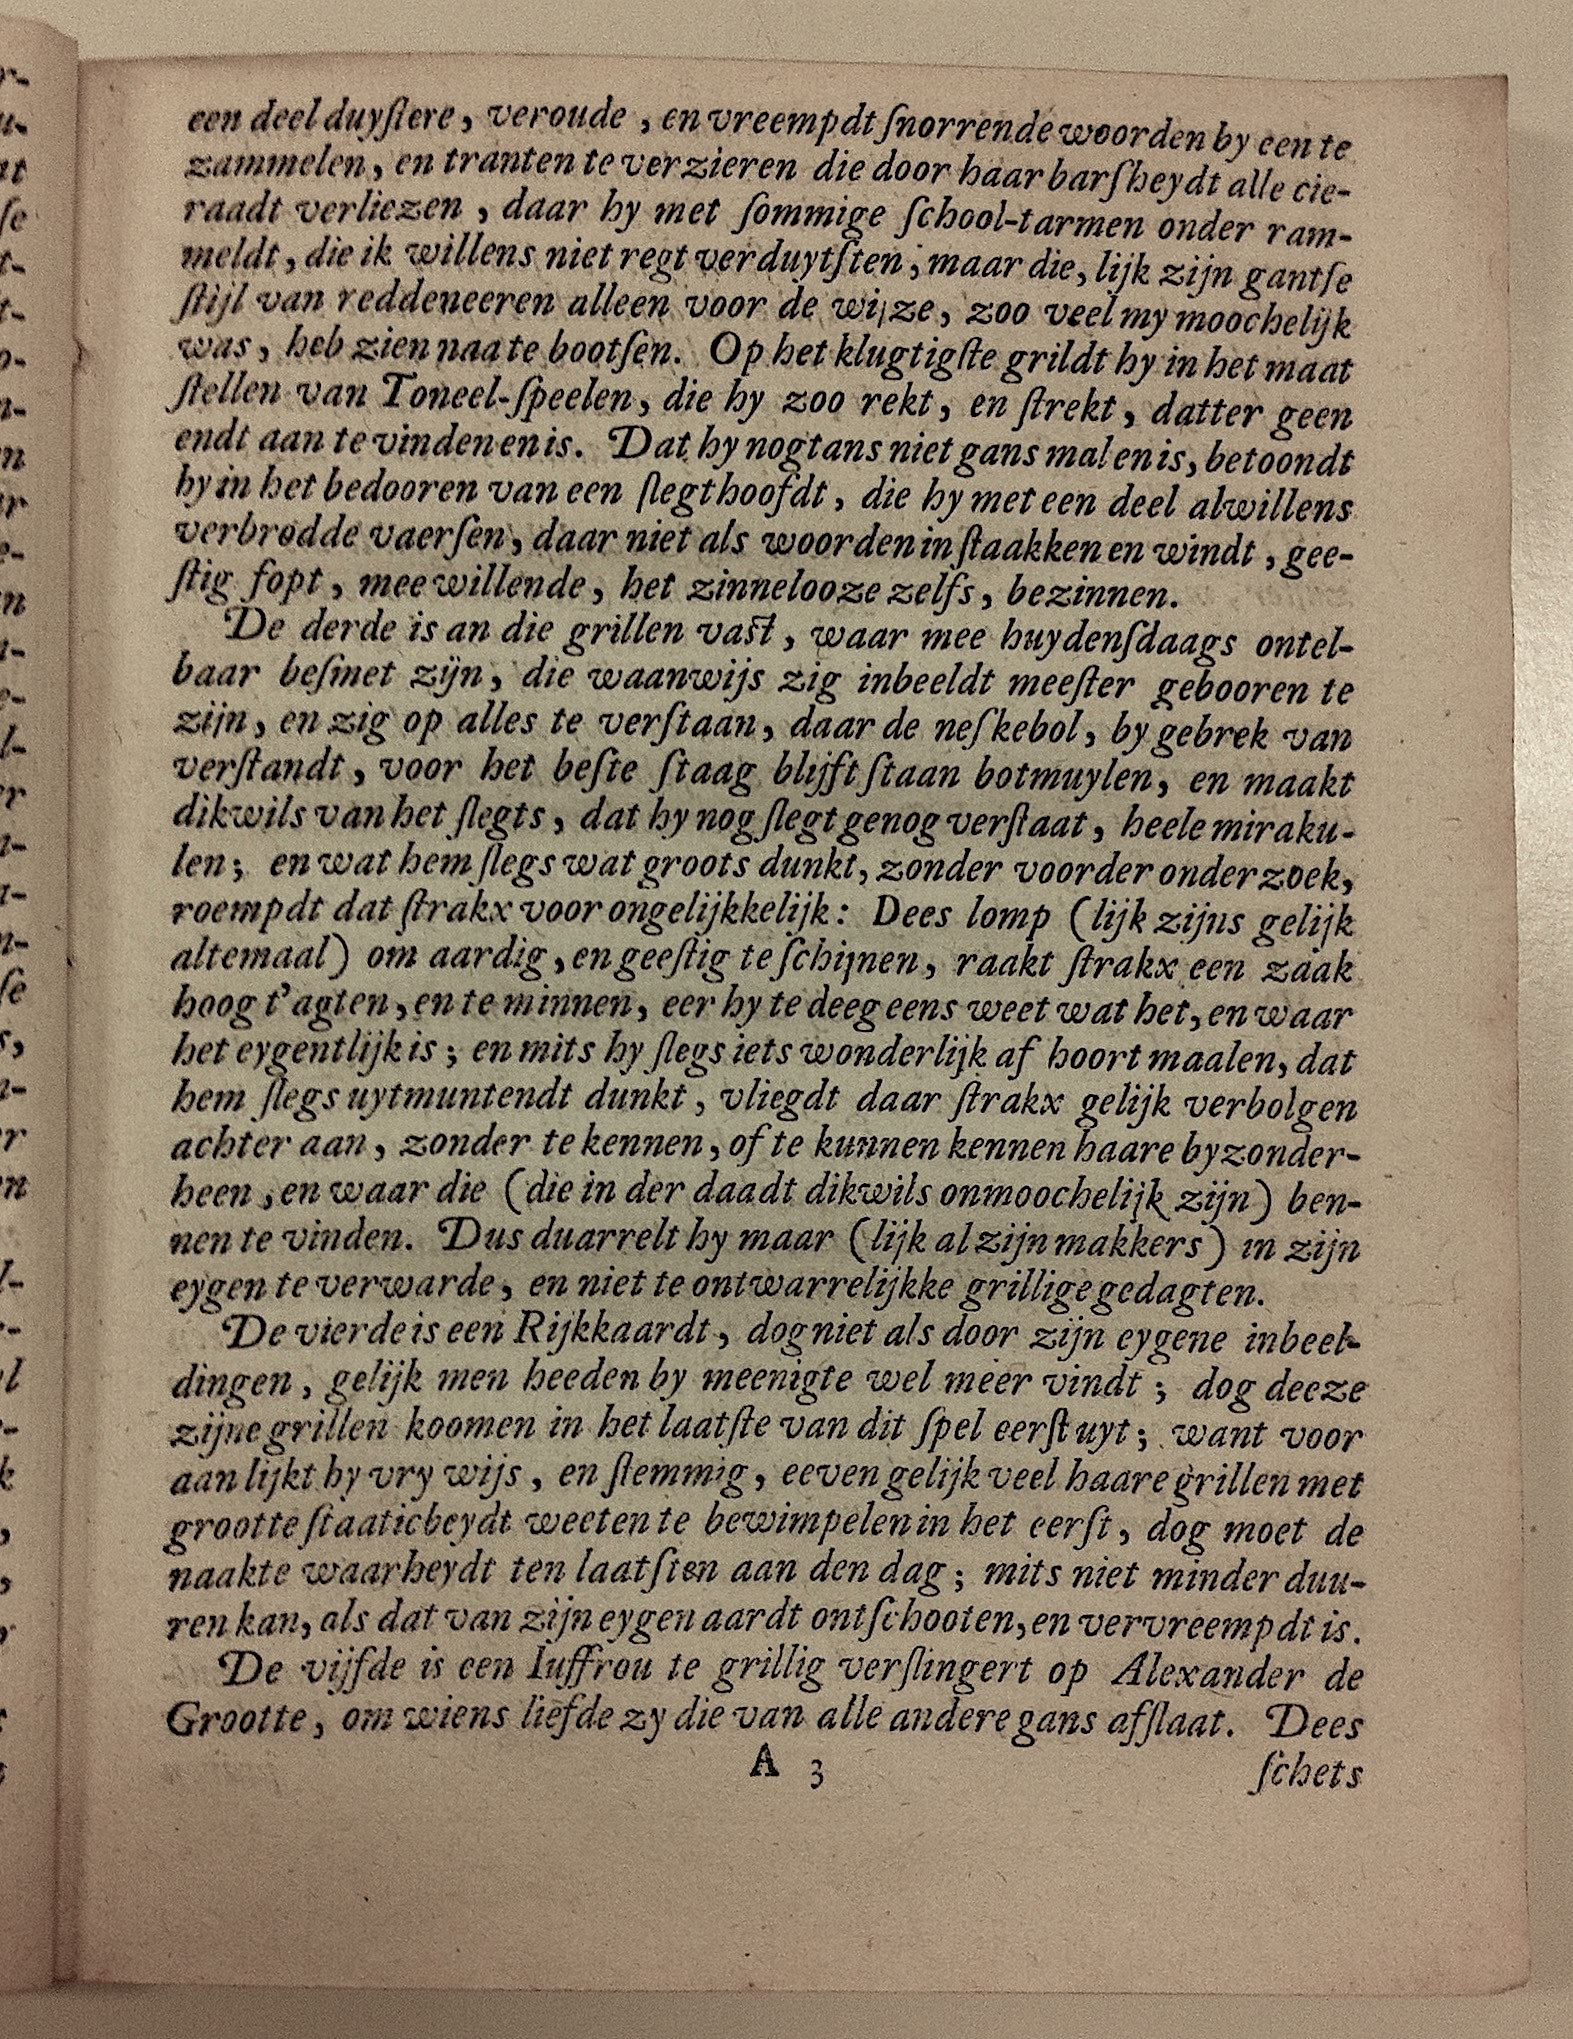 een deel duyſtere, veroude, en vreempdt ſnorrende woorden by een te
zammelen, en tranten te verzieren die door haar barſheydt alle cie-
raadt verliezen, daar hy met ſommige ſchool-tarmen onder ram-
meldt, die ik willens niet regt verduytſten; maar die, lijk zijn gantſe
ſtijl van reddeneeren alleen voor de wijze, zoo veel my moochelijk
was, heb zien naa te bootſen. Op het klugtigſte grildt hy in het maat
ſtellen van Toneel-ſpeelen, die hy zoo rekt, en ſtrekt, datter geen
endt aan te vinden en is. Dat hy nogtans niet gans mal en is, betoondt
hy in het bedooren van een ſlegthoofdt, die hy met een deel alwillens
verbrodde vaerſen, daar niet als woorden in ſtaakken en windt, gee-
ſtig fopt, mee willende, het zinnelooze zelfs, bezinnen.
De derde is an die grillen vaſt, waar mee huydenſdaags ontel-
baar beſmet zijn, die waanwijs zig inbeeldt meeſter gebooren te
zijn, en zig op alles te verſtaan, daar de neſkebol, by gebrek van
verſtandt, voor het beſte ſtaag blijft ſtaan botmuylen, en maakt
dikwils van het ſlegts, dat hy nog ſlegt genog verſtaat, heele miraku-
len; en wat hem ſlegs wat groots dunkt, zonder voorder onderzoek,
roempdt dat ſtrakx voor ongelijkkelijk: Dees lomp (lijk zijns gelijk
altemaal) om aardig, en geeſtig te ſchijnen, raakt ſtrakx een zaak
hoog t'agten, en te minnen, eer hy te deeg eens weet wat het, en waar
het eygentlijk is; en mits hy ſlegs iets wonderlijk af hoort maalen, dat
hem ſlegs uytmuntendt dunkt, vliegdt daar ſtrakx gelijk verbolgen
achter aan, zonder te kennen, of te kunnen kennen haare byzonder-
heen, en waar die (die in der daadt dikwils onmoochelijk zijn) ben-
nen te vinden. Dus duarrelt hy maar (lijk al zijn makkers) in zijn
eygen te verwarde, en niet te ontwarrelijkke grillige gedagten.
De vierde is een Rijkkaardt, dog niet als door zijn eygene inbeel-
dingen, gelijk men heeden by meenigte wel meer vindt; dog deeze
zijne grillen koomen in het laatſte van dit ſpel eerſt uyt; want voor
aan lijkt hy vry wijs, en ſtemmig, eeven gelijk veel haare grillen met
grootte ſtaaticheydt weeten te bewimpelen in het eerſt, dog moet de
naakte waarheydt ten laatſten aan den dag; mits niet minder duu-
ren kan, als dat van zijn eygen aardt ontſchooten, en vervreempdt is.
De vijfde is een Iuffrou te grillig verſlingert op Alexander de
Grootte, om wiens liefde zy die van alle andere gans afſlaat. Dees
A 3
ſchets